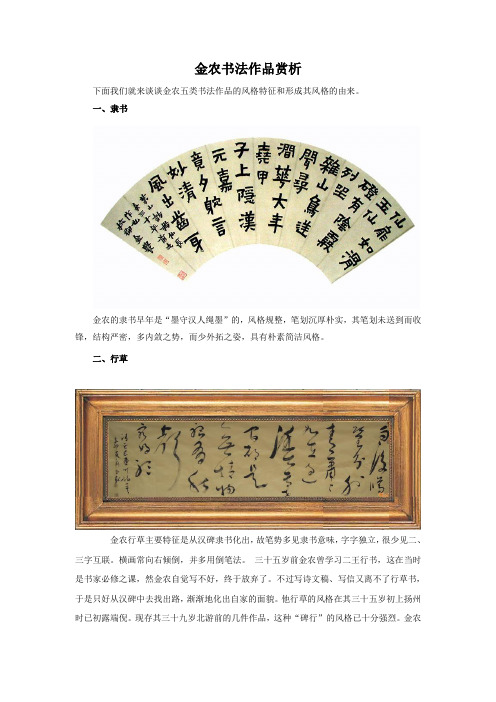 金农书法作品赏析
下面我们就来谈谈金农五类书法作品的风格特征和形成其风格的由来。
一、隶书
雜山鳥送
堯甲
子上
漢
元嘉
竟夕
言
妙清
風出齒
金农的隶书早年是“墨守汉人绳墨”的，风格规整，笔划沉厚朴实，其笔划未送到而收
锋，结构严密，多内敛之势，而少外拓之姿，具有朴素简洁风格。
二、行草
金农行草主要特征是从汉碑隶书化出，故笔势多见隶书意味，字字独立，很少见二、
三字互联。横画常向右倾倒，并多用倒笔法。 三十五岁前金农曾学习二王行书，这在当时
是书家必修之课，然金农自觉写不好，终于放弃了。不过写诗文稿、写信又离不了行草书，
于是只好从汉碑中去找出路，渐渐地化出自家的面貌。他行草的风格在其三十五岁初上扬州
时已初露端倪。现存其三十九岁北游前的几件作品，这种“碑行”的风格已十分强烈。金农